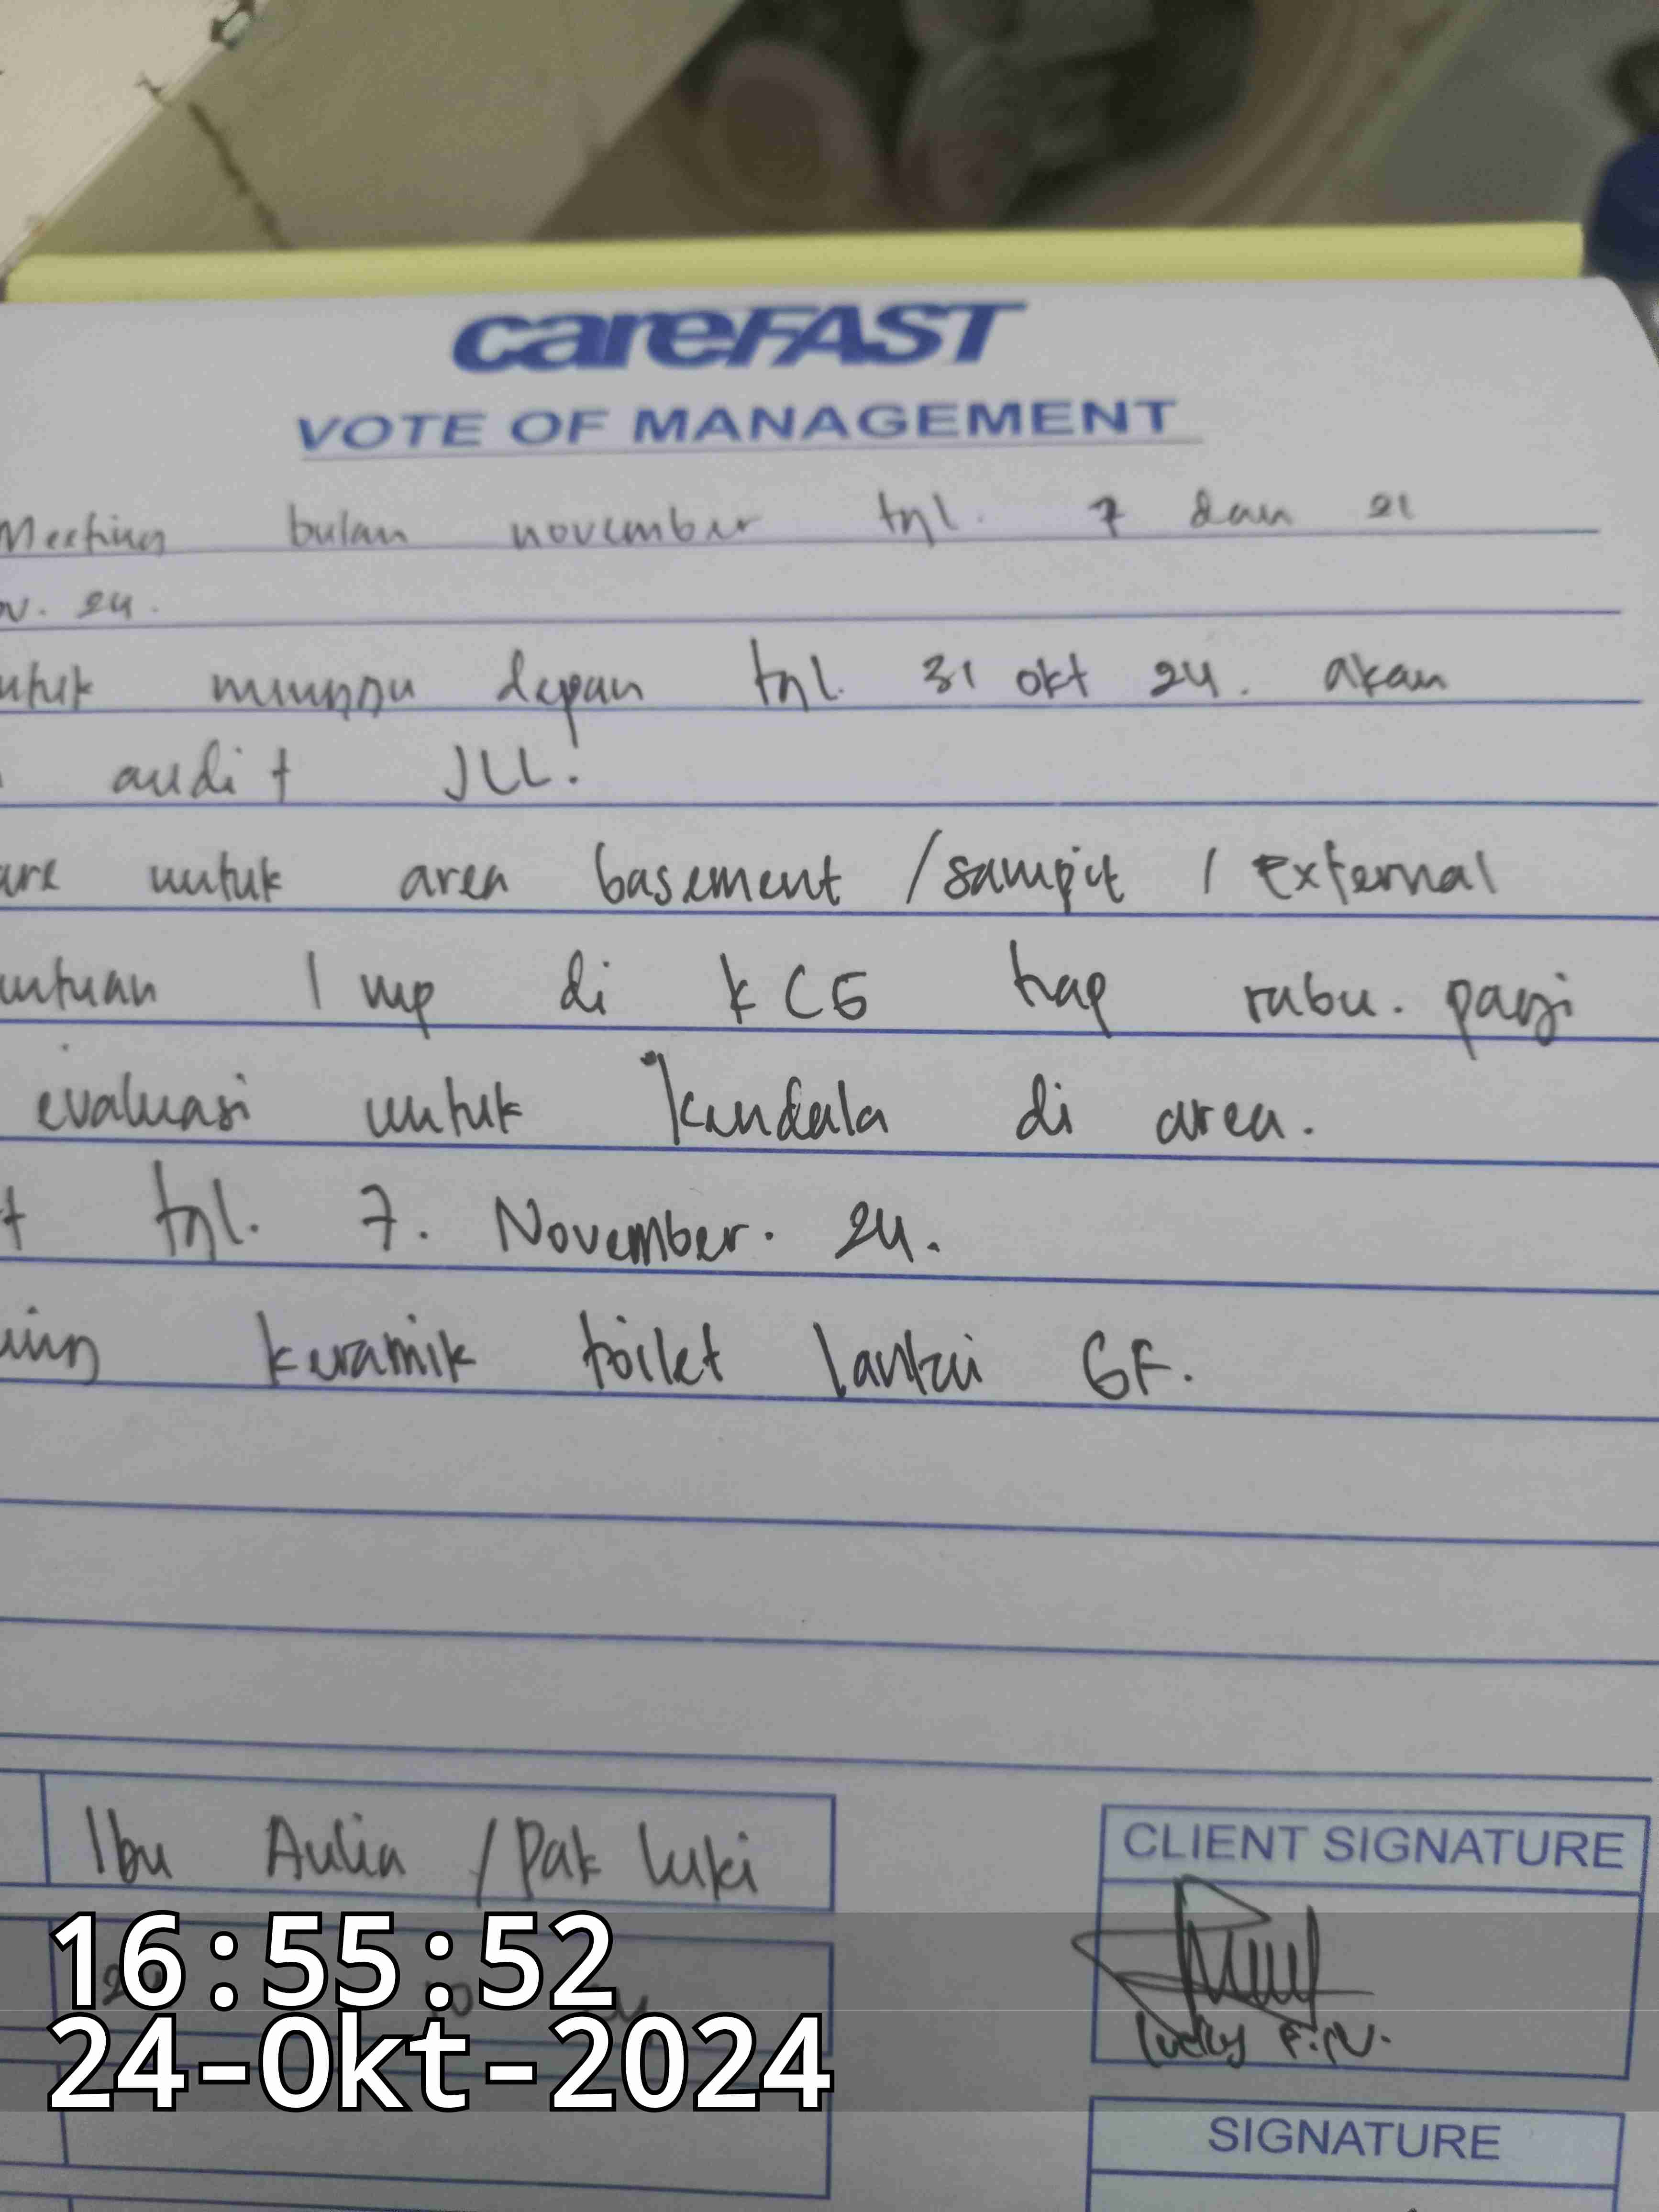 careFAST
VOTE OF MANAGEMENT
Meeting bulan november tgl. 7 dan 21
24.
minggu depan tgl. 31 okt 24. akan
audit JLL.
untuk area basement / sampit / External
1 mp di KCG tiap rabu. pagi
evaluasi untuk kendala di area.
tgl. 7. November. 24.
keramik toilet lantai GF.
Ibu Aulia / Pak Luki
CLIENT SIGNATURE
Lucky F.N.
16:55:52
24-Okt-2024
SIGNATURE